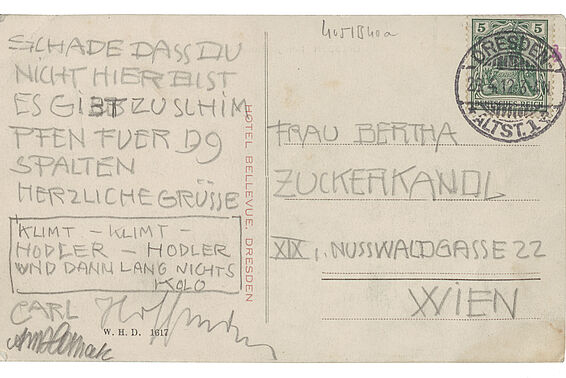 SCHADE DASS DU
NICHT HIER BIST
ES GIEBT ZU SCHIM
PFEN FUER D9
SPALTEN
HERZLICHE GRÜSSE
KLIMT - KLIMT -
HODLER - HODLER
UND DANN LANG NICHTS
KOLO
CARL
Hoffmann
W. H. D. 1617
HOTEL BELLEVUE, DRESDEN
5 5
DRESDEN
ALTST. 1
FRAU BERTHA
ZUCKERKANDL
XIX, NUSSWALDGASSE 22
WIEN